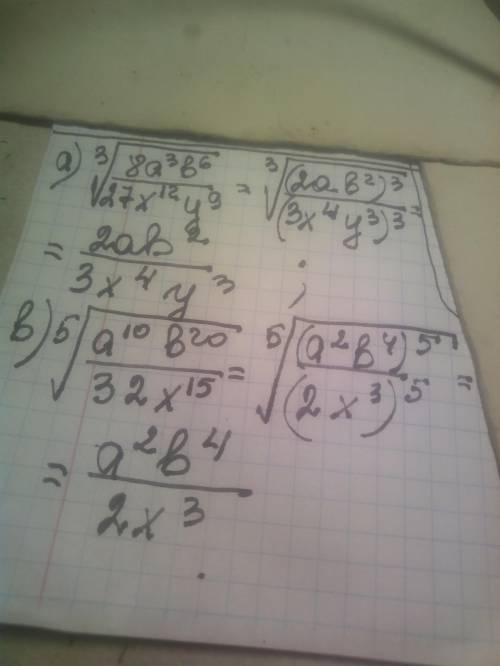 а) ∛(8a³b⁶ / 27x¹²y⁹) = ∛((2ab²)³ / (3x⁴y³)³) =
= 2ab² / 3x⁴y³ ;
в) ⁵√(a¹⁰b²⁰ / 32x¹⁵) = ⁵√((a²b⁴)⁵ / (2x³)⁵) =
= a²b⁴ / 2x³ .